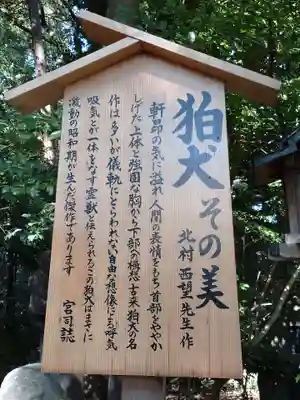 狛犬 その美
北村西望先生作
軒昂の気に溢れ人間の表情をもち首部をやや
しげた上体と強固な胸から下部の構想古来狛犬の名
作は多いが儀軌にとらわれない自由な想像による呼気
吸気とが一体をなす霊獣と伝えられるこの狛犬はまさに
激動の昭和期が生んだ傑作であります
宮司誌